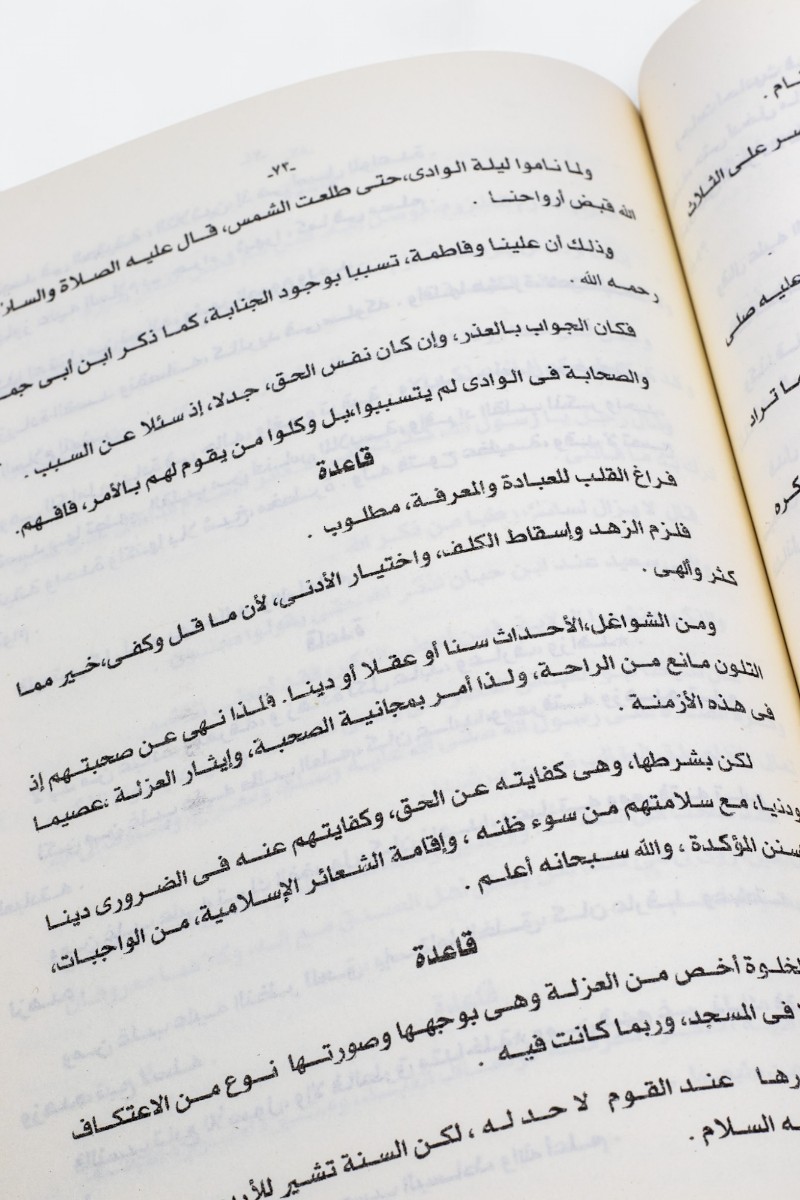 -٧٣-
ولما ناموا ليلة الوادى،حتى طلعت الشمس، قال عليه الصلاة
الله قبض أرواحنا .
وذلك أن علينا وفاطمة، تسببا بوجود الجنابة، كما ذكر ابن أبى
رحمه الله .
فكان الجواب بالعذر، وإن كان نفس الحق، جدلا، إذ سئلا عن السبب .
والصحابة فى الوادى لم يتسببوا،بل وكلوا من يقوم لهم بالأمر، فافهم.
قاعدة
فراغ القلب للعبادة والمعرفة، مطلوب .
فلزم الزهد وإسقاط الكلف، واختيار الأدنى، لأن ما قل وكفى،خير مما
كثر وألهى .
ومن الشواغل،الأحداث سنا أو عقلا أو دينا. فلذا نهى عن صحبتهم إذ
التلون مانع من الراحة، ولذا أمر بمجانية الصحبة، وإيثار العزلة ،عصيما
فى هذه الأزمنة .
لكن بشرطها، وهى كفايته عن الحق، وكفايتهم عنه فى الضرورى دينا
ودنيا، مع سلامتهم من سوء ظنه ، وإقامة الشعائر الإسلامية، من الواجبات،
المؤكدة ، والله سبحانه أعلم .
قاعدة
الخلوة أخص من العزلة وهى بوجهها وصورتها نوع من الاعتكاف
فى المسجد، وربما كانت فيه .
عند القوم لا حد له ، لكن السنة تشير
السلام .
على الثلاث
عليه صلى
تراد